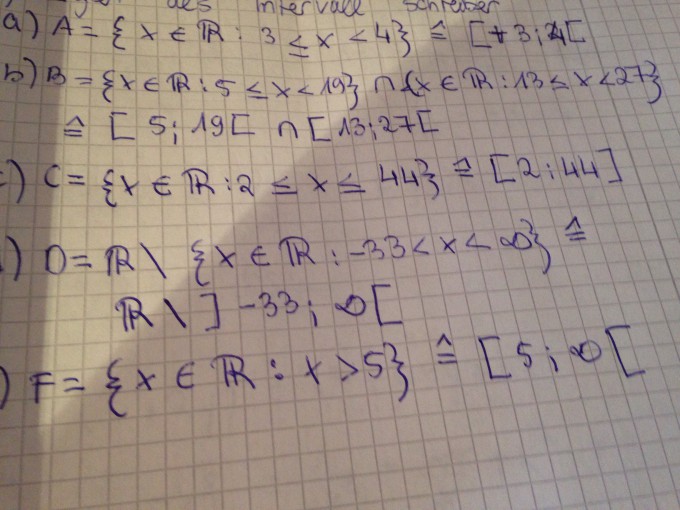 des Intervall schreiben
a) A = { x ∈ ℝ : 3 ≤ x < 4} ≙ [+3;4[
b) B = {x ∈ ℝ : 5 ≤ x < 19} ∩ {x ∈ ℝ : 13 ≤ x < 27}
≙ [ 5; 19 [ ∩ [ 13; 27 [
) C = {x ∈ ℝ : 2 ≤ x ≤ 44} ≙ [2; 44]
) D = ℝ \ {x ∈ ℝ : -33 < x < ∞} ≙
ℝ \ ] -33; ∞ [
) F = {x ∈ ℝ : x > 5} ≙ [5; ∞ [